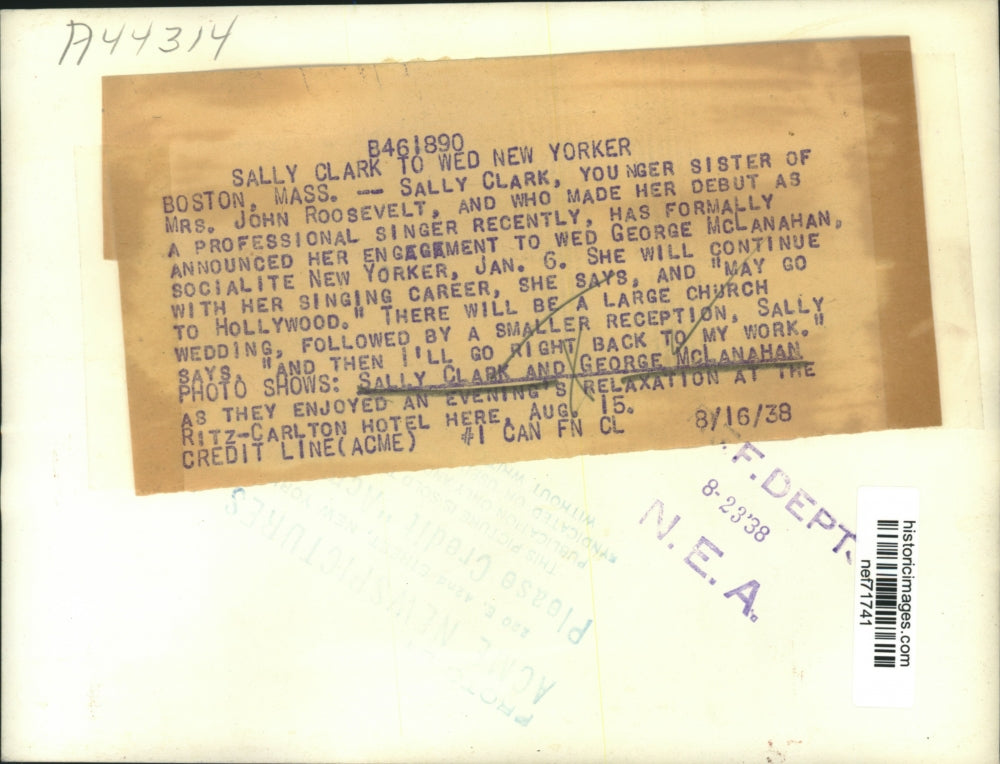 A44314
B461890
SALLY CLARK TO WED NEW YORKER
BOSTON, MASS. -- SALLY CLARK, YOUNGER SISTER OF
MRS. JOHN ROOSEVELT, AND WHO MADE HER DEBUT AS
A PROFESSIONAL SINGER RECENTLY, HAS FORMALLY
ANNOUNCED HER ENGAGEMENT TO WED GEORGE MCLANAHAN,
SOCIALITE NEW YORKER, JAN. 6. SHE WILL CONTINUE
WITH HER SINGING CAREER, SHE SAYS, AND "MAY GO
TO HOLLYWOOD." THERE WILL BE A LARGE CHURCH
WEDDING, FOLLOWED BY A SMALLER RECEPTION, SALLY
SAYS, "AND THEN I'LL GO RIGHT BACK TO MY WORK."
PHOTO SHOWS: SALLY CLARK AND GEORGE MCLANAHAN
AS THEY ENJOYED AN EVENING'S RELAXATION AT THE
RITZ-CARLTON HOTEL HERE, AUG. 15.
CREDIT LINE(ACME) #1 CAN FN CL 8/16/38
F. DEPT.
8-23'38
N. E. A.
THIS PICTURE IS SOLD
PUBLICATION ONLY AND
SYNDICATED OR
WITHOUT
Please Credit "ACME
220 E. 42nd ST., NEW YORK
ACME NEWSPICTURES
historicimages.com
nef71741